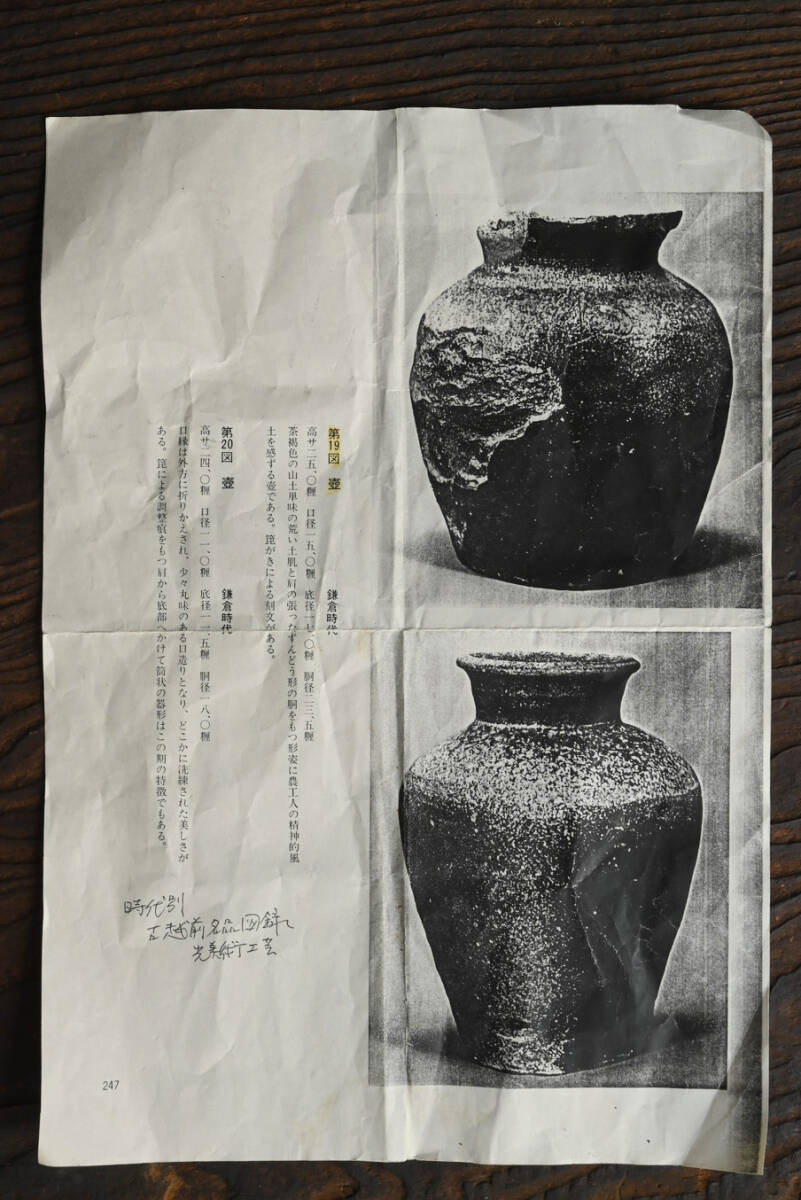 第19図　壺　鎌倉時代
高サ二五、〇糎　口径一五、〇糎　底径一七、〇糎　胴径二三、五糎
茶褐色の山土単味の荒い土肌と肩の張ったずんどう形の胴をもつ形姿に農工人の精神的風
土を感ずる壺である。箆がきによる刻文がある。
第20図　壺　鎌倉時代
高サ二四、〇糎　口径一一、〇糎　底径一一、五糎　胴径一八、〇糎
口縁は外方に折りかえされ、少々丸味のある口造りとなり、どこかに洗練された美しさが
ある。箆による調整痕をもつ肩から底部へかけて筒状の器形はこの期の特徴でもある。
時代別
古越前名品図録
光美術工芸
247